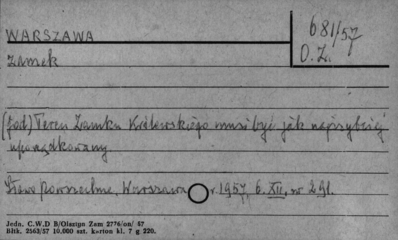 WARSZAWA
681/57
O.Z.
Zamek
(fad) Teren Zamku Królewskiego musi być jak najszybciej
uporządkowany.
Słowo Powszechne, Warszawa r. 1957, 6.XII, nr 291.
Jedn. C.W,D B/Olsztyn Zam 2774/on/ 57
Bltk. 2563/57 10.000 szt. karton kl. 7 g 220.